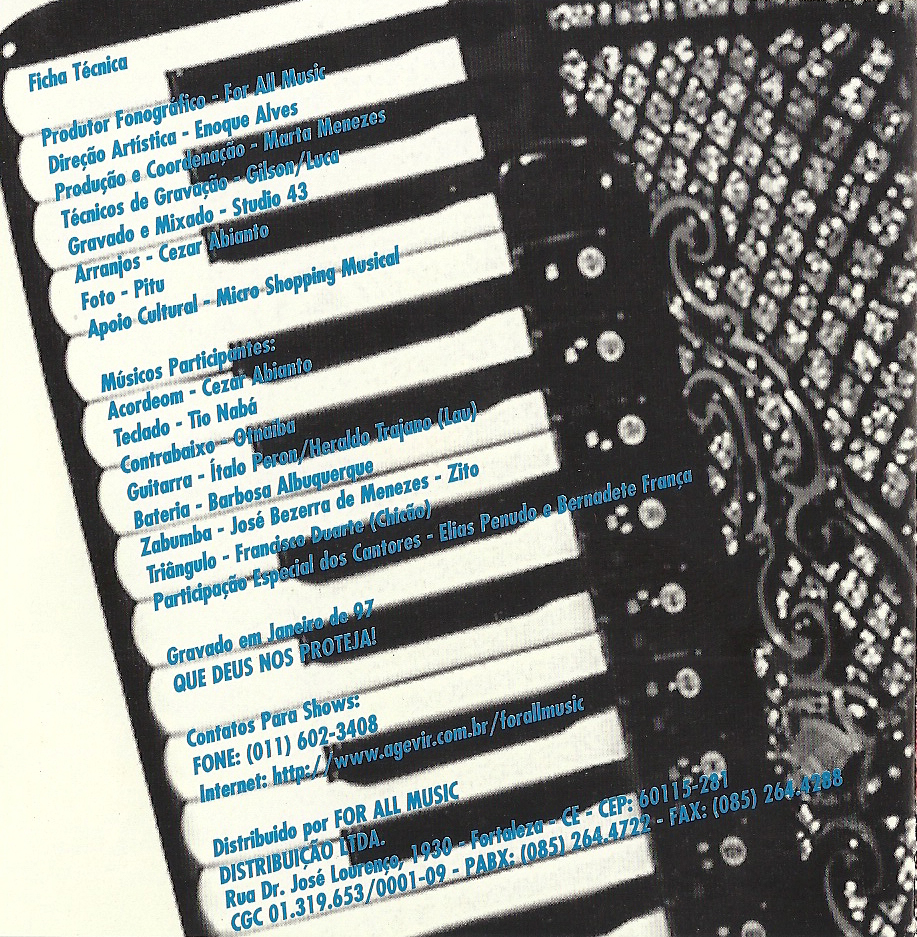 Ficha Técnica
Produtor Fonográfico - For All Music
Direção Artística - Enoque Alves
Produção e Coordenação - Marta Menezes
Técnicos de Gravação - Gilson/Luca
Gravado e Mixado - Studio 43
Arranjos - Cezar Abianto
Foto - Pitu
Apoio Cultural - Micro Shopping Musical
Músicos Participantes:
Acordeom - Cezar Abianto
Teclado - Tio Nabá
Contrabaixo -
Guitarra - Ítalo Peron/Heraldo Trajano (Lau)
Bateria - Barbosa Albuquerque
Zabumba - José Bezerra de Menezes - Zito
Triângulo - Francisco Duarte (Chicão)
Participação Especial dos Cantores - Elias Penudo e Bernadete França
Gravado em Janeiro de 97
QUE DEUS NOS PROTEJA!
Contatos Para Shows:
FONE: (011) 602-3408
Internet: http://www.agevir.com.br/forallmusic
Distribuido por FOR ALL MUSIC
DISTRIBUIÇÃO LTDA.
Rua Dr. José Lourenço, 1930 - Fortaleza - CE - CEP: 60115-281
CGC 01.319.653/0001-09 - PABX: (085) 264.4722 - FAX: (085) 264.4288